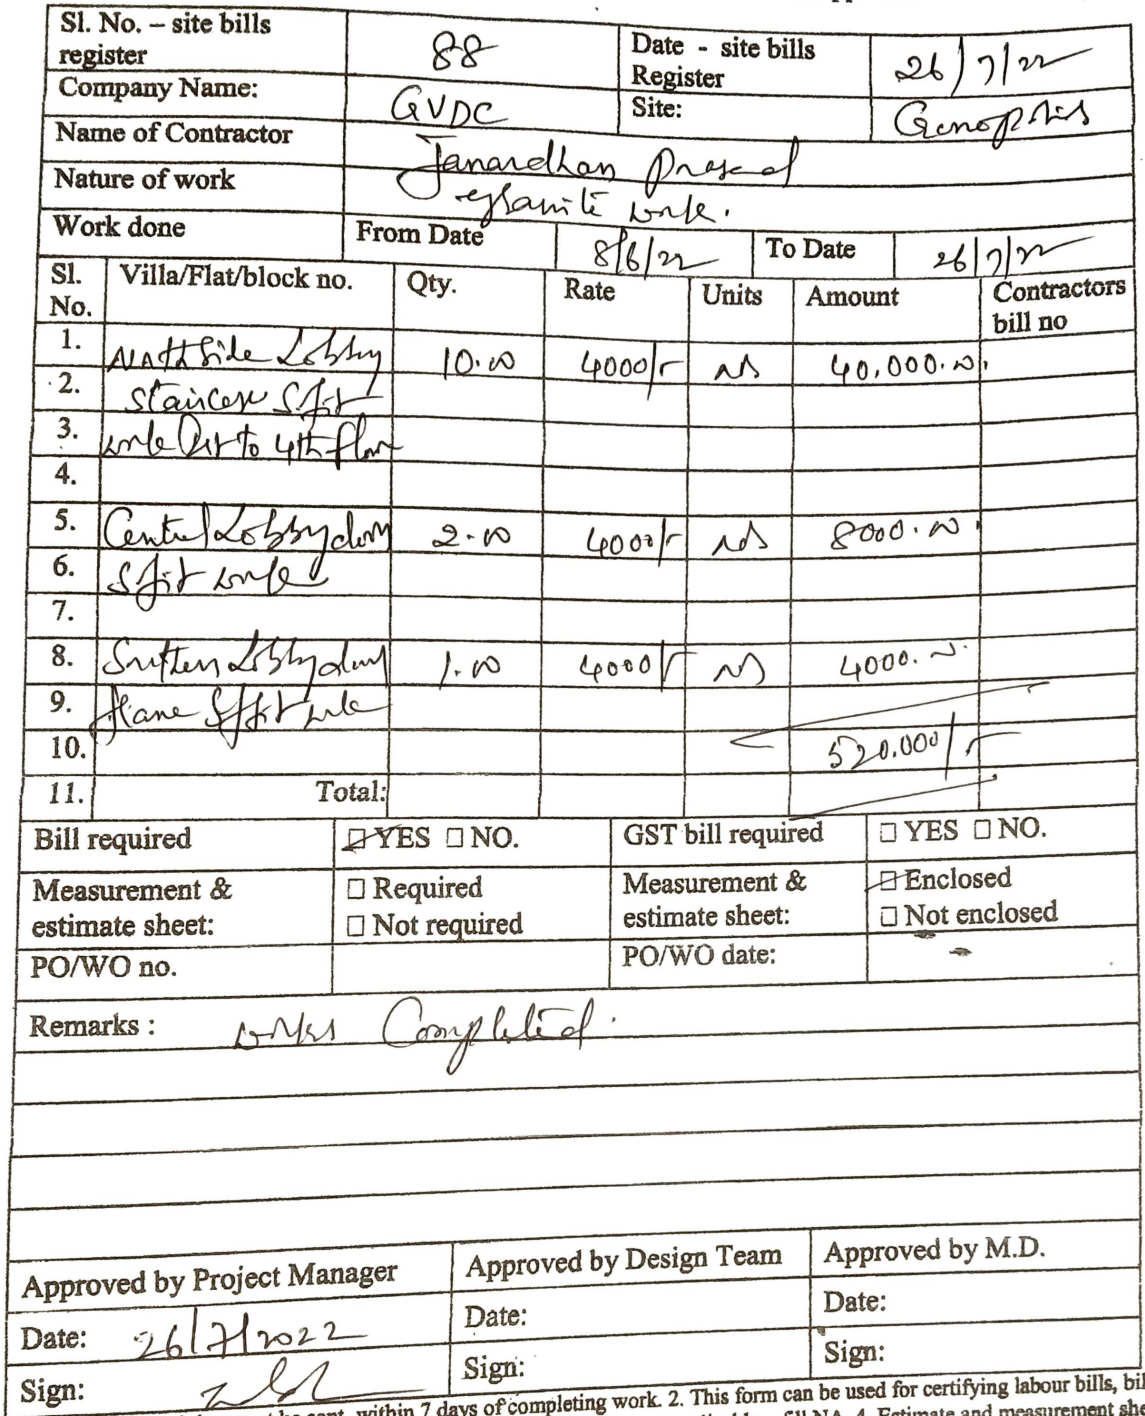 Sl. No. – site bills register 88 Date - site bills Register 26/7/22
Company Name: GVDC Site: Genopolis
Name of Contractor Janardhan Prasad
Nature of work granite work.
Work done From Date 8/6/22 To Date 26/7/22
Sl. No. Villa/Flat/block no. Qty. Rate Units Amount Contractors bill no
1. North Side Lobby 10.00 4000/- 40,000.00
2. Staircase Sofit
3. work to 4th floor
4.
5. Central Lobby 2.00 4000/- 8000.00
6. Sofit work
7.
8. Lobby 1.00 4000/- 4000.00
9.
10. 520,000/-
11. Total:
Bill required YES NO. GST bill required YES NO.
Measurement & estimate sheet: Required Not required Measurement & estimate sheet: Enclosed Not enclosed
PO/WO no. PO/WO date: -
Remarks : works Completed.
Approved by Project Manager Approved by Design Team Approved by M.D.
Date: 26/7/2022 Date: Date:
Sign: Sign: Sign:
within 7 days of completing work. 2. This form can be used for certifying labour bills,